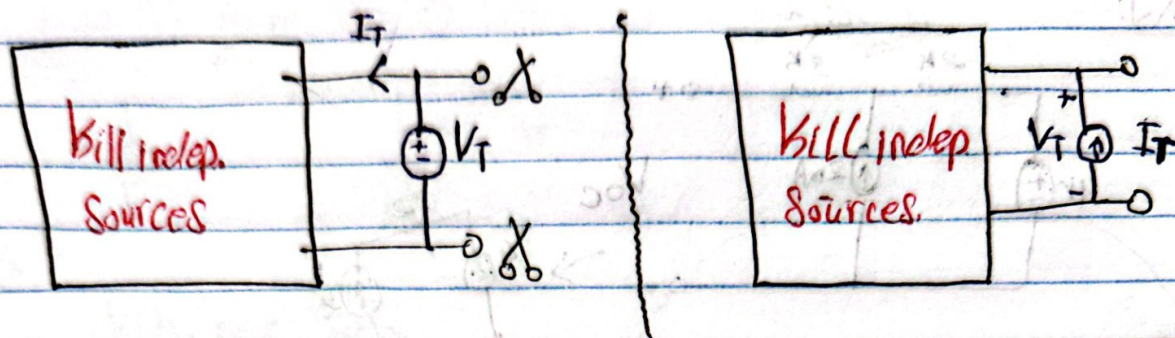 I_T
Kill indep.
Sources
+
-
V_T
Kill indep
Sources.
+
V_T
-
I_T